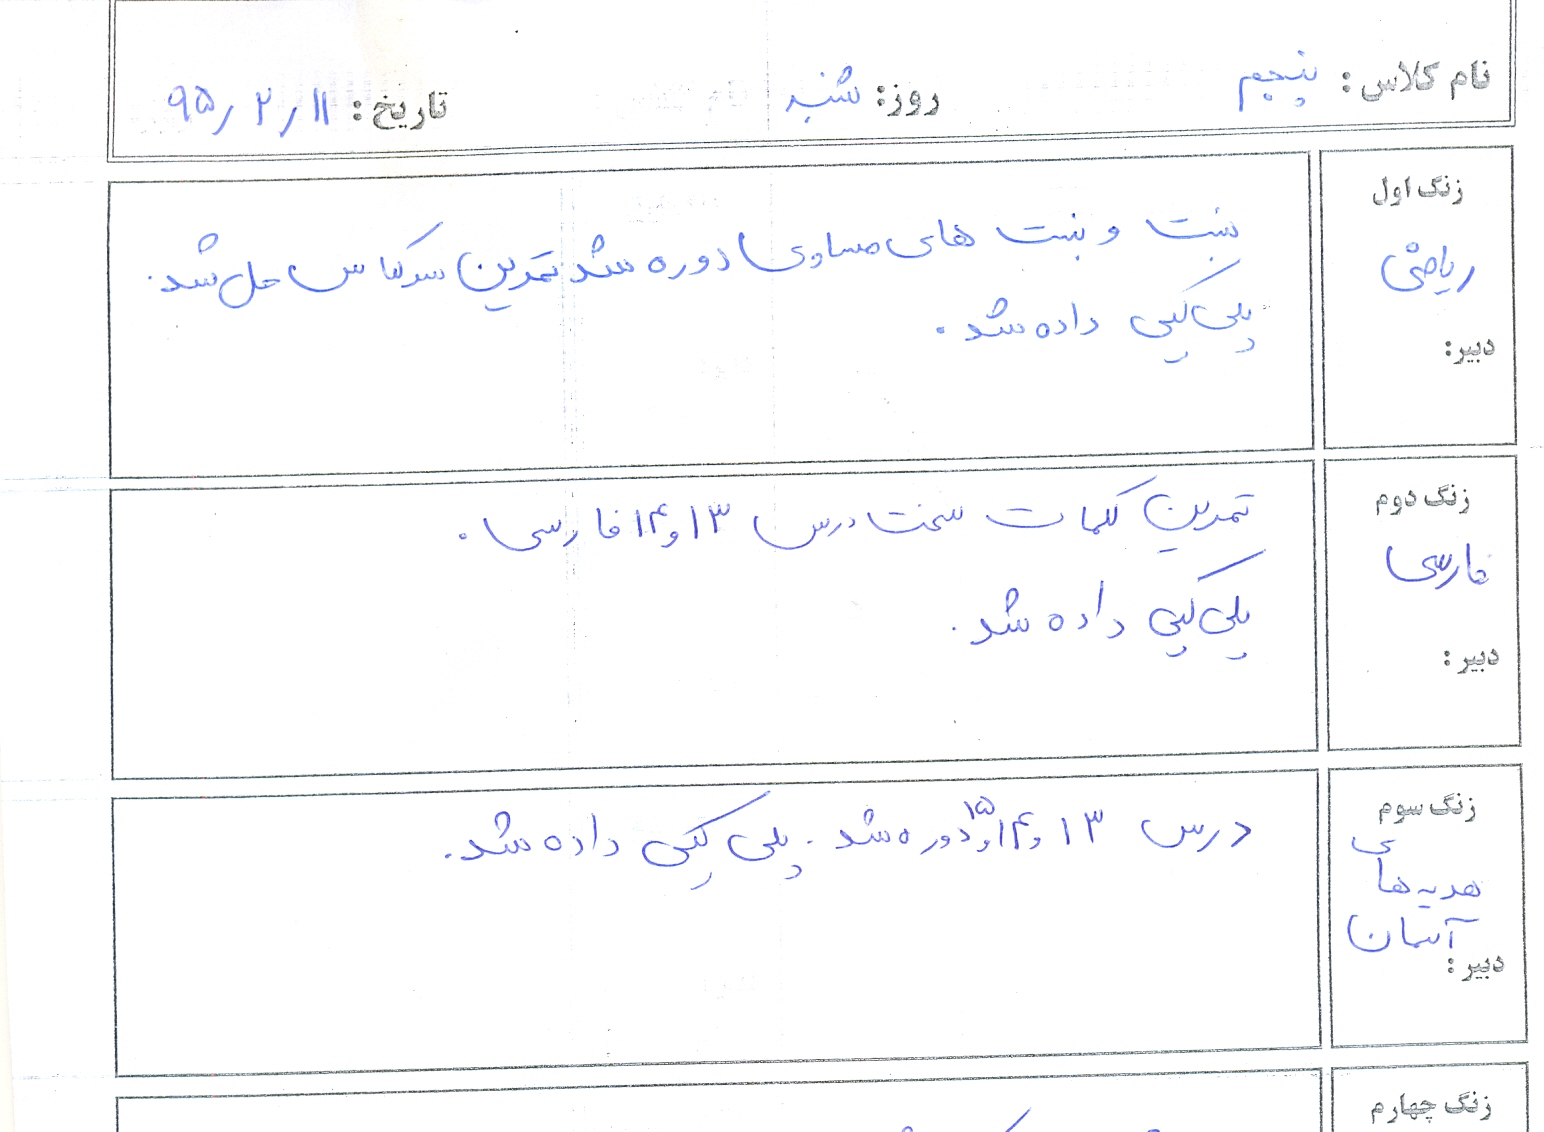 نام کلاس: پنجم روز: شنبه تاریخ: ۹۵/۲/۱۱
زنگ اول
ریاضی
دبیر:
نسبت و نسبت های مساوی دوره شد تمرین سر کلاس حل شد.
پلی کپی داده شد.
زنگ دوم
فارسی
دبیر:
تمرین کلمات سخت درس ۱۳ و ۱۴ فارسی.
پلی کپی داده شد.
زنگ سوم
هدیه های
آسمان
دبیر:
درس ۱۳ و ۱۴ و ۱۵ دوره شد. پلی کپی داده شد.
زنگ چهارم